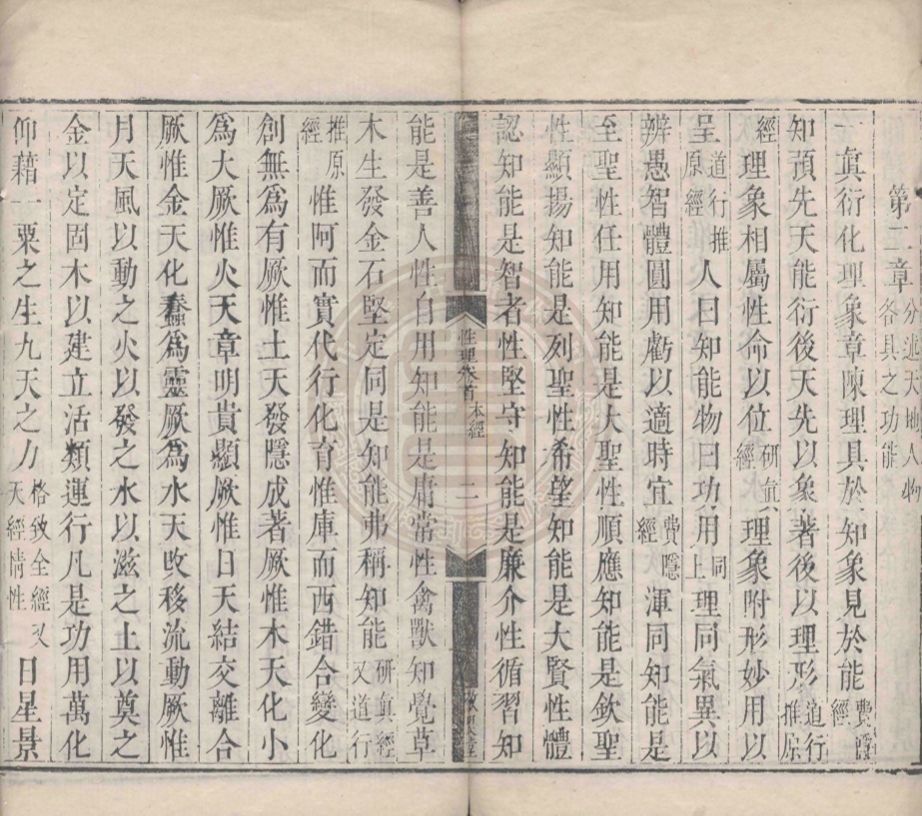 第二章分述天地人物各具之功能
一眞衍化理象章陳理具於知象見於能費隱經
知預先天能衍後天先以象著後以理形道行推原
經理象相屬性命以位研眞經理象附形妙用以
呈道行推原經人曰知能物曰功用同上理同氣異以
辨愚智體圓用虧以適時宜費隱經渾同知能是
至聖性任用知能是大聖性順應知能是欽聖
性顯揚知能是列聖性希望知能是大賢性體
認知能是智者性堅守知能是廉介性循習知
性理卷首 本經 二
能是善人性自用知能是庸常性禽獸知覺草
木生發金石堅定同是知能弗稱知能研眞經又道行
推原經惟阿而實代行化育惟庫而西錯合變化
創無爲有厥惟土天發隱成著厥惟木天化小
爲大厥惟火天章明貴顯厥惟日天結交離合
厥惟金天化蠢爲靈厥爲水天攺移流動厥惟
月天風以動之火以發之水以滋之土以奠之
金以定固木以建立活類運行凡是功用萬化
仰藉一粟之生九天之力格致全經又天經情性日星景